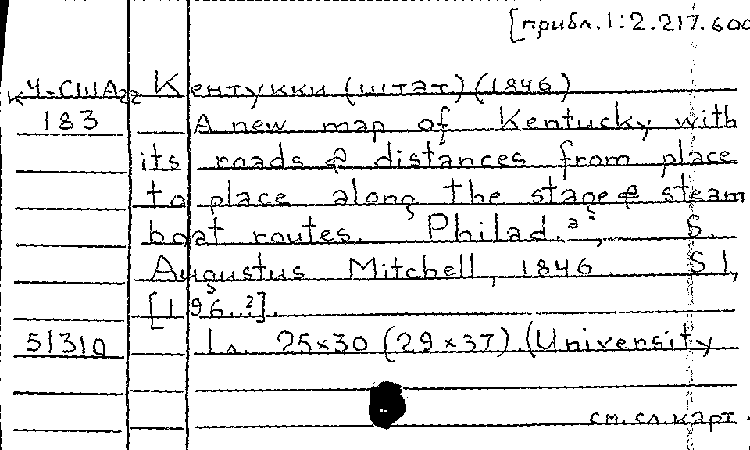 [прибл. 1:2.217.600
к4-США22 Кентукки (штат) (1846)
183 A new map of Kentucky with
its roads & distances from place
to place along the stage & steam
boat routes. Philad.a:, S.
Augustus Mitchell, 1846 S.l,
[196.?].
51310 1 л. 25×30 (29×37) (University
см. сл. карт.